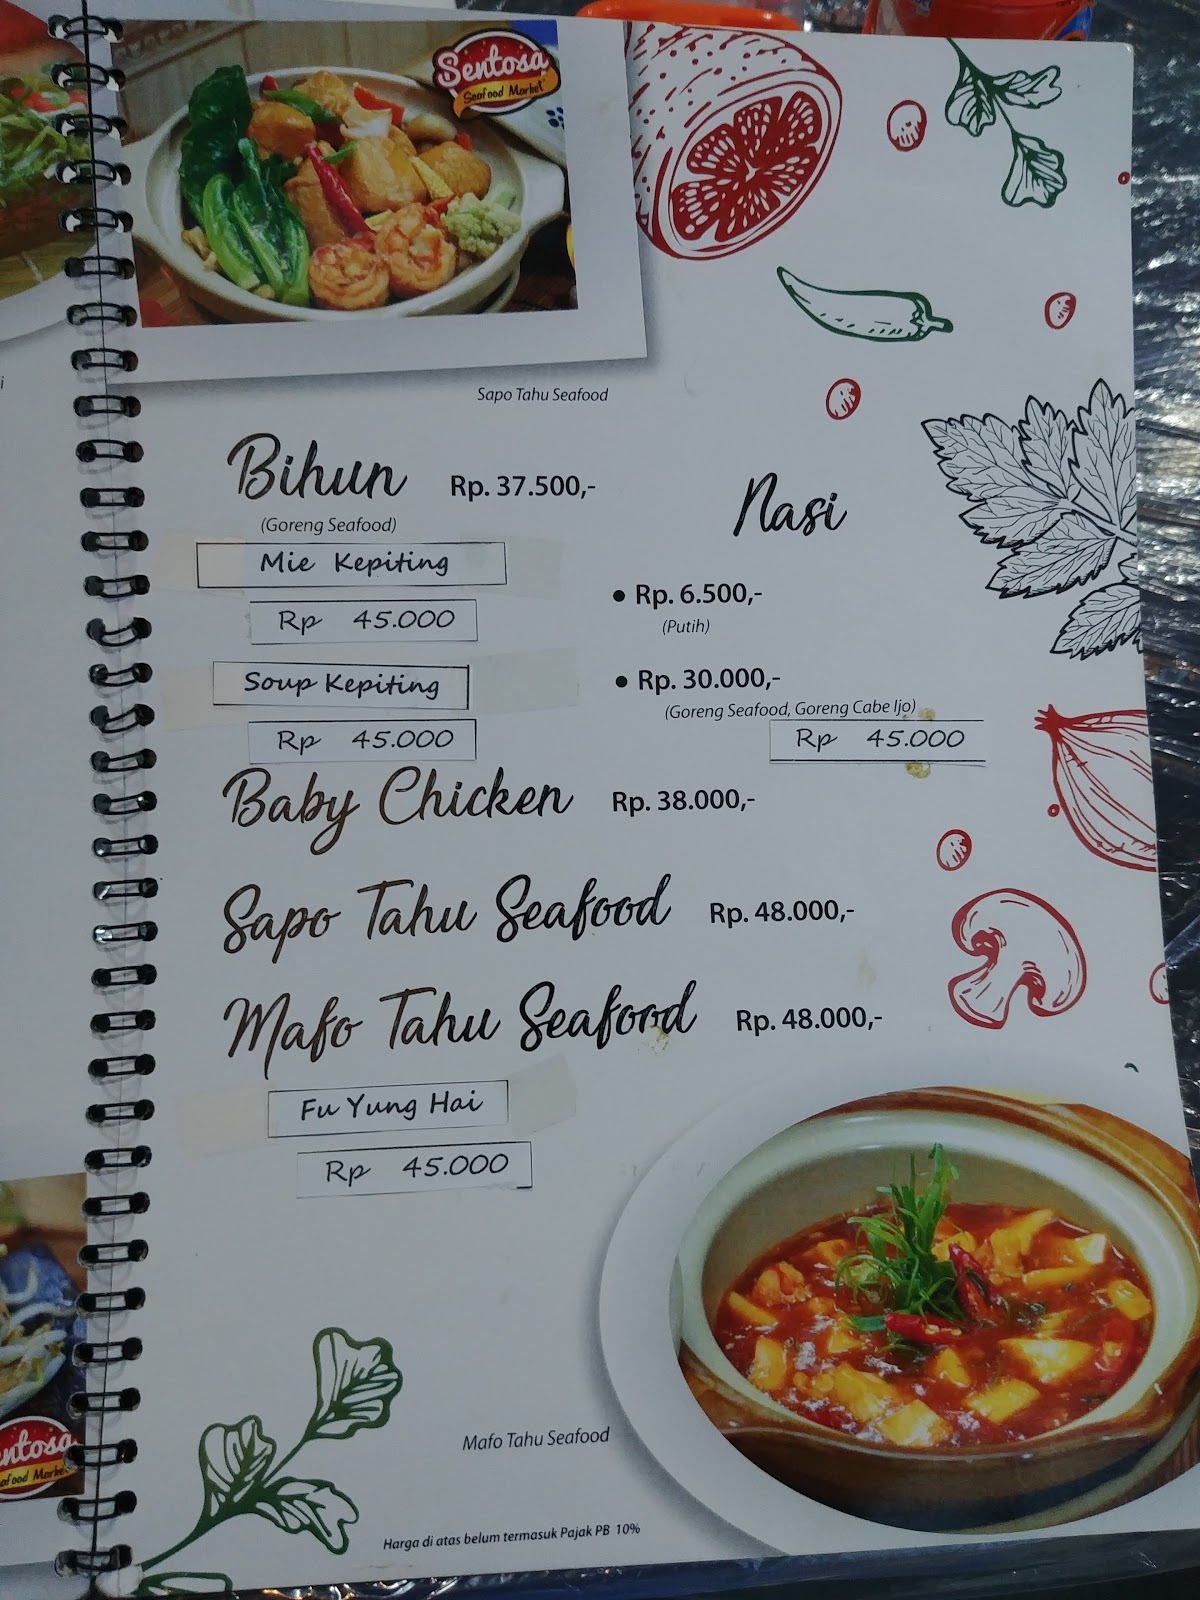 Sentosa
Seafood Market
Sapo Tahu Seafood
Bihun Rp. 37.500,-
(Goreng Seafood)
Mie Kepiting
Rp 45.000
Soup Kepiting
Rp 45.000
Nasi
• Rp. 6.500,-
(Putih)
• Rp. 30.000,-
(Goreng Seafood, Goreng Cabe Ijo)
Rp 45.000
Baby Chicken Rp. 38.000,-
Sapo Tahu Seafood Rp. 48.000,-
Mafo Tahu Seafood Rp. 48.000,-
Fu Yung Hai
Rp 45.000
Mafo Tahu Seafood
Harga di atas belum termasuk Pajak PB 10%
entosa
afood Market
i